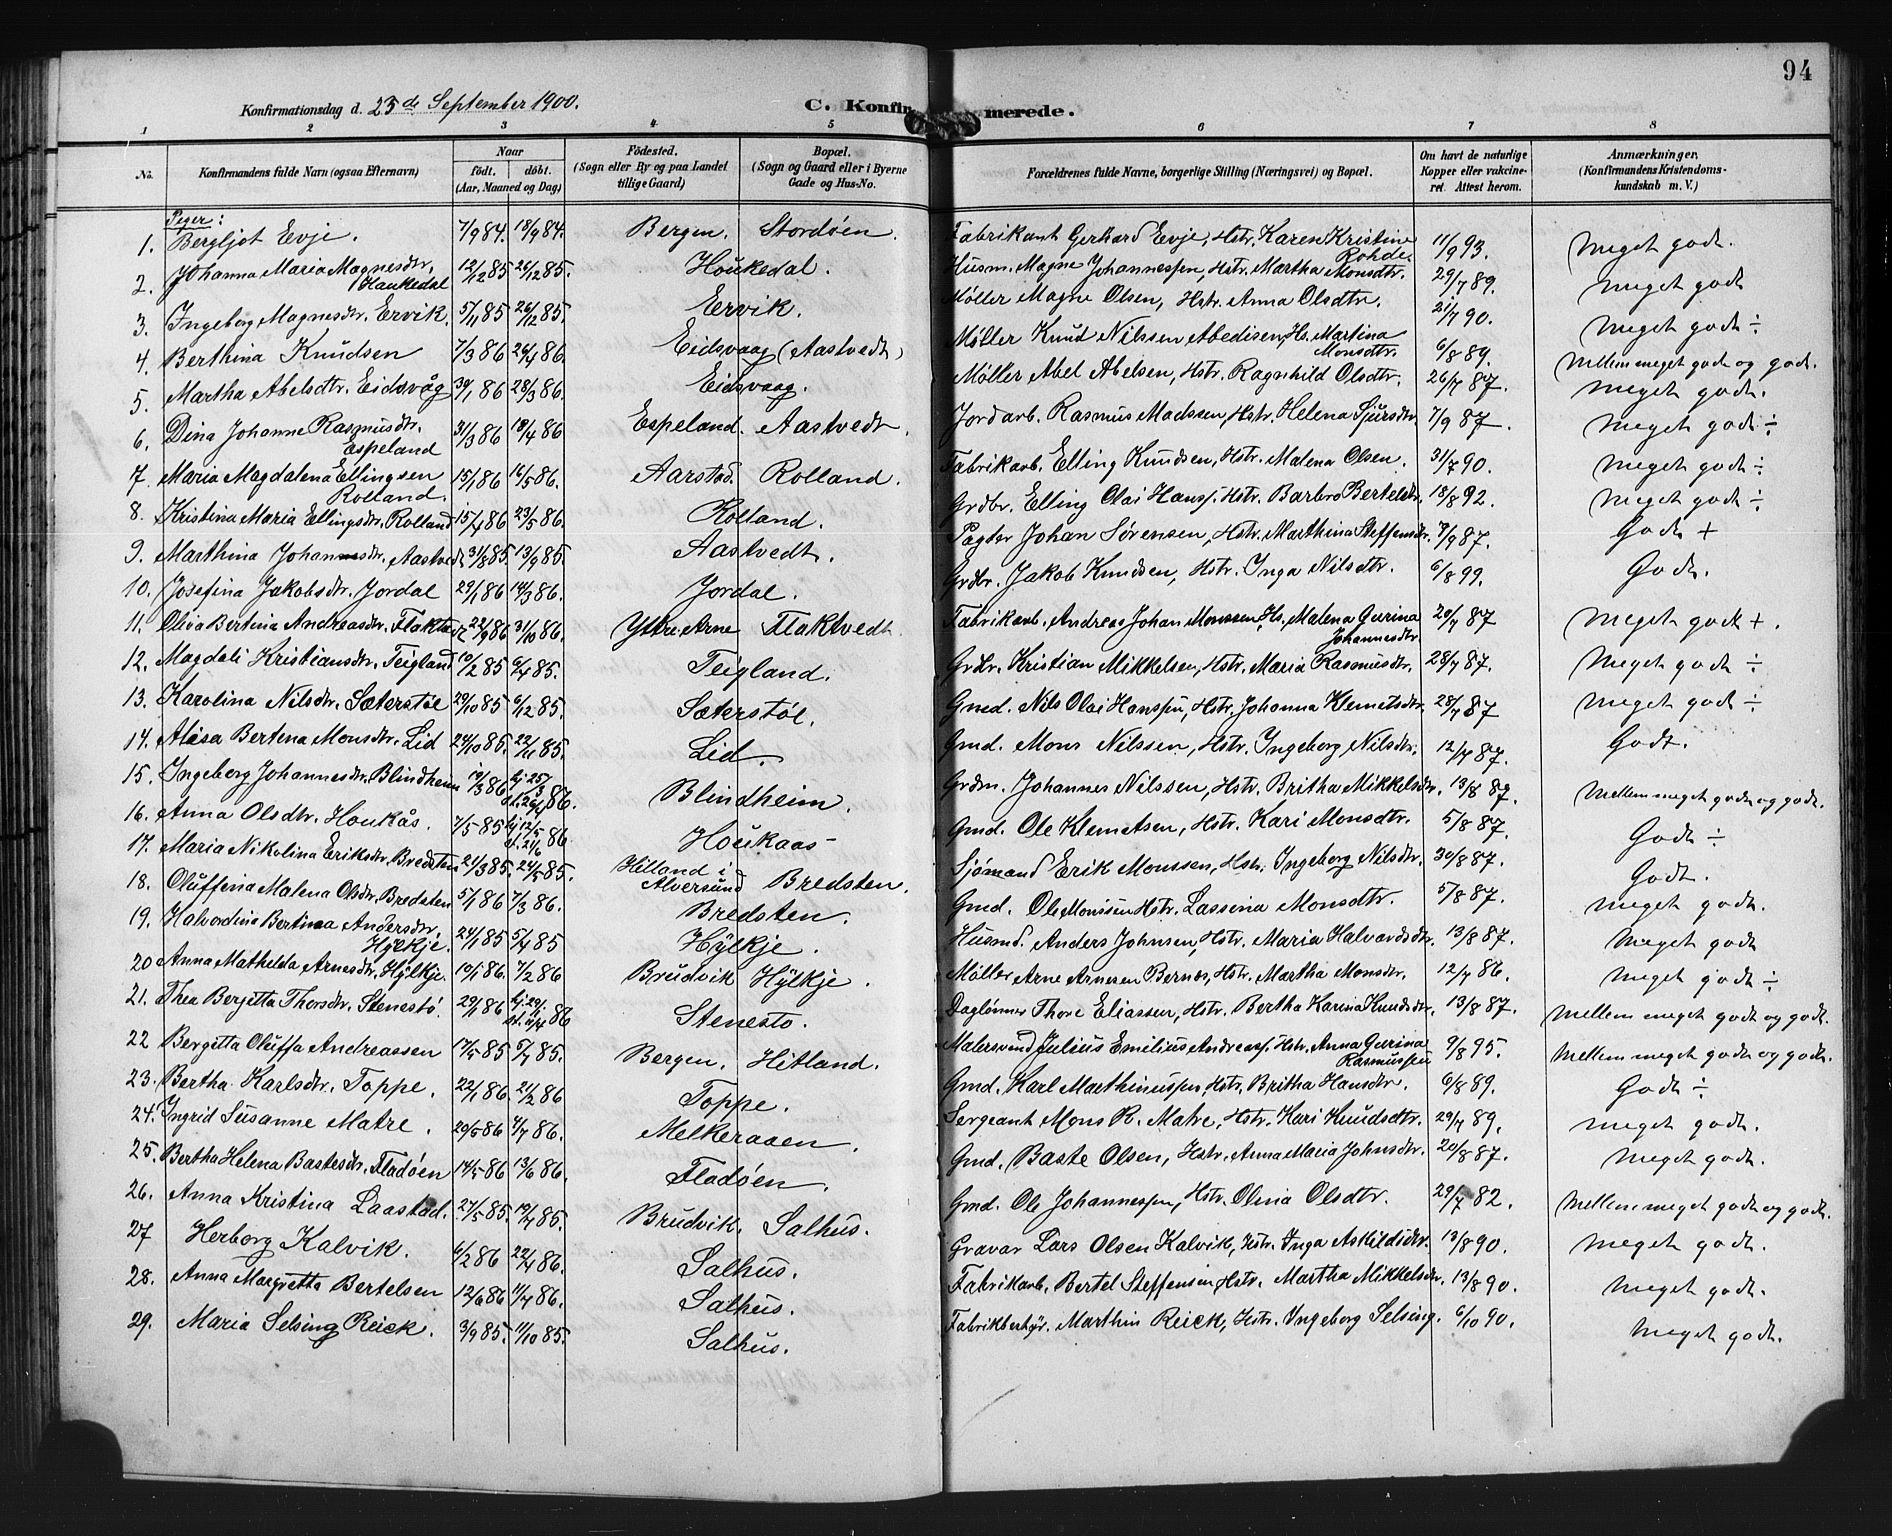 94
Konfirmationsdag d. 23de September 1900.
C. Konfirmerede.
1 2 3 4 5 6 7 8
No. Konfirmandens fulde Navn (ogsaa Efternavn) Naar födt. döbt. (Aar, Maaned og Dag) Födested. (Sogn eller By og paa Landet tillige Gaard) Bopæl. (Sogn og Gaard eller i Byerne Gade og Hus-No. Forældrenes fulde Navne, borgerlige Stilling (Næringsvei) og Bopæl. Om havt de naturlige Kopper eller vakcineret. Attest herom. Anmærkninger. (Konfirmandens Kristendomskundskab m. V.)
Peger:
1. Bergljot Evje. 7/9 84. 18/9 84. Bergen. Stordöen. Fabrikant Gerhard Evje, Hstr. Karen Kristine Rohde. 11/9 93. Meget godt.
2. Johanna Maria Magnesdtr. Haukedal 12/12 85 26/12 85. Houkedal. Husm. Magne Johannessen, Hstr. Martha Monsdtr. 29/7 89. Meget godt
3. Ingeborg Magnesdtr. Ervik. 5/11 85 26/12 85. Ervik. Møller Magne Olsen, Hstr. Anna Olsdtr. 21/7 90. Meget godt ÷
4. Berthina Knudsen 7/3 86 26/4 86. Eidsvaag (Aastvedt) Møller Knud Nilssen Abedisen, Hs. Martina Monsdtr. 6/8 89. Mellem meget godt og godt.
5. Martha Abelsdtr. Eidsvåg 30/1 86 28/3 86. Eidsvaag. Møller Abel Abelsen, Hstr. Ragnhild Olsdtr. 26/7 87. Meget godt.
6. Dina Johanne Rasmusdtr. Espeland 31/3 86 18/4 86 Espeland. Aastvedt. Jordarb. Rasmus Madssen, Hstr. Helena Sjursdtr. 7/9 87. Meget godt ÷
7. Maria Magdalena Ellingsen Rolland. 15/1 86 16/5 86. Aarstad. Rolland. Fabrikarb. Elling Knudsen, Hstr. Malena Olsen. 31/7 90. Meget godt ÷
8. Kristina Maria Ellingsdtr. Rolland 15/4 86 23/5 86. Rolland. Grdbr. Elling Olai Hanss. Hstr. Barbro Bertelsdtr. 18/8 92. Meget godt ÷
9. Marthina Johannesdtr. Aastvedt 31/8 85. 13/9 85. Aastvedt. Pagter Johan Sørensen, Hstr. Marthina Steffensdtr. 7/9 87. Godt +
10. Josefina Jakobsdtr. Jordal 29/1 86 14/3 86. Jordal. Grdbr. Jakob Knudsen, Hstr. Inga Nilsdtr. 6/8 99. Godt.
11. Olivia Bertina Andreasdtr. Flaktvedt 22/9 86 31/10 86. Yttre Arne Flaktvedt. Fabrikarb. Andreas Johan Monssen, Hs. Malena Gurina Johannesdtr 20/7 87 Meget godt +.
12. Magdali Kristiansdtr. Teigland 10/2 85 6/4 85. Teigland. Grdbr. Kristian Mikkelsen, Hstr. Maria Rasmusdtr. 28/7 87. Meget godt ÷
13. Karolina Nilsdtr. Sæterstøl 29/10 85 6/12 85. Sæterstøl. Gmd. Nils Olai Hanssen, Hstr. Johanna Klemetsdtr. 28/7 87 Meget godt ÷
14. Alisa Bertena Monsdtr. Lid 24/10 85. 22/11 85. Lid. Gmd. Mons Nilssen, Hstr. Ingeborg Nilsdtr. 12/7 87. Godt.
15. Ingeborg Johannesdtr. Blindheim 19/3 86 hj. 25/3 86. st. 26/4 Blindheim. Grdm. Johannes Nilssen, Hstr. Britha Mikkelsdtr. 13/8 87. Mellem meget godt og godt.
16. Anna Olsdtr. Houkås. 7/5 85 hj. 12/5 86 st. 21/6 Houkaas Gmd. Ole Klemetsen, Hstr. Kari Monsdtr. 5/8 87. Godt ÷
17. Maria Nikolina Eriksdtr. Bredsten 21/3 85. 24/5 85. Hilland i Alversund Bredsten. Sjømand Erik Monssen, Hstr. Ingeborg Nilsdtr. 30/8 87. Godt.
18. Oluffina Malena Olsdtr. Bredsten 5/1 86 7/3 86. Bredsten. Gmd. Ole Monssen Hstr. Lassina Monsdtr. 5/8 87. Meget godt.
19. Halvordina Bertinea Andersdtr. Hylkje. 24/1 85 5/4 85 Hylkje. Husmd. Anders Johnsen, Hstr. Maria Halvordsdtr. 13/8 87. Meget godt
20 Anna Mathelda Arnesdtr. Hylkje. 10/1 86. 7/2 86 Brudvik Hylkje. Møller Arne Arnesen Bernes, Hstr. Martha Monsdtr. 12/7 86. Meget godt ÷
21. Thea Bergetta Thorsdtr. Stenestö. 29/1 86 hj. 29/1 86 st. 11/4 Stenesto. Daglønner Thore Eliassen, Hstr. Bertha Karina Knudsdtr. 13/8 87. Mellem meget godt og godt.
22 Bergetta Oluffa Andreassen 17/5 85 5/7 85. Bergen. Hitland. Malersvend Julius Emilius Andreass. Hstr. Anna Gurina Rasmussen 9/8 95. Mellem meget godt og godt.
23. Bertha Karlsdtr. Toppe. 22/1 86. 21/2 86 Toppe. Gmd. Karl Marthinussen, Hstr. Britha Hansdtr. 6/8 89. Godt ÷
24. Ingrid Susanne Matre. 29/5 86 4/7 86. Melkeraaen. Sergeant Mons R. Matre, Hstr. Kari Knudsdtr. 29/7 89. Meget godt.
25. Bertha Helena Bastesdtr. Fladöen 14/5 86 13/6 86. Fladöen. Gmd. Baste Olsen, Hstr. Anna Maria Johnsdtr. 20/8 87. Meget godt.
26. Anna Kristina Laastad. 27/5 85. 19/7 85. Brudvik. Salhus. Gmd. Ole Johannessen, Hstr. Olina Olsdtr. 29/7 82. Mellem meget godt og godt.
27 Herborg Kalvik. 6/2 86 22/4 86. Salhus. Gravar Lars Olsen Kalvik, Hstr. Inga Askildsdtr. 13/8 90. Meget godt.
28. Anna Margretta Bertelsen 12/6 86 11/7 86. Salhus. Fabrikarb. Bertel Steffensen, Hstr. Martha Mikkelsdtr. 13/8 90. Meget godt.
29. Maria Selsing Reick. 3/9 85. 11/10 85. Salhus. Fabrikbestyr. Marthin Reick, Hstr. Ingeborg Selsing. 6/10 90. Meget godt.